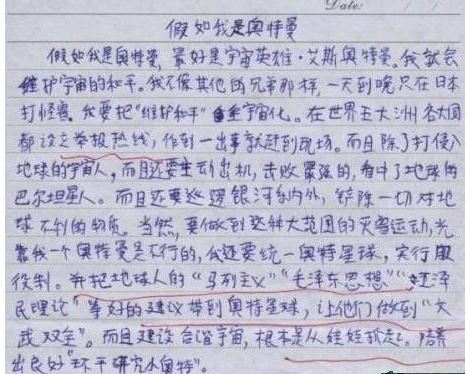 Date:
假如我是奥特曼
假如我是奥特曼，最好是宇宙英雄·艾斯奥特曼。我就会
维护宇宙的和平。我不像其他的兄弟那样，一天到晚只在日本
打怪兽。我要把“维护和平”全宇宙化。在世界五大洲各大国
都设立举报热线，作到一出事就赶到现场。而且除了打侵入
地球的宇宙人，而且还要主动出机，击败最强的，看中了地球的
巴尔坦星人。而且还要巡逻银河系内外，铲除一切对地
球不利的物质。当然，要做到这种大范围的灭害运动，光
靠我一个奥特曼是不行的，我还要统一奥特星球，实行服
役制。并把地球人的“马列主义”“毛泽东思想”“ 泽
民理论”等好的建议带到奥特星球，让他们做到“文
武双全”。而且建设合谐宇宙，根本是从娃娃抓起。培养
出良好“环干研究小奥特”。